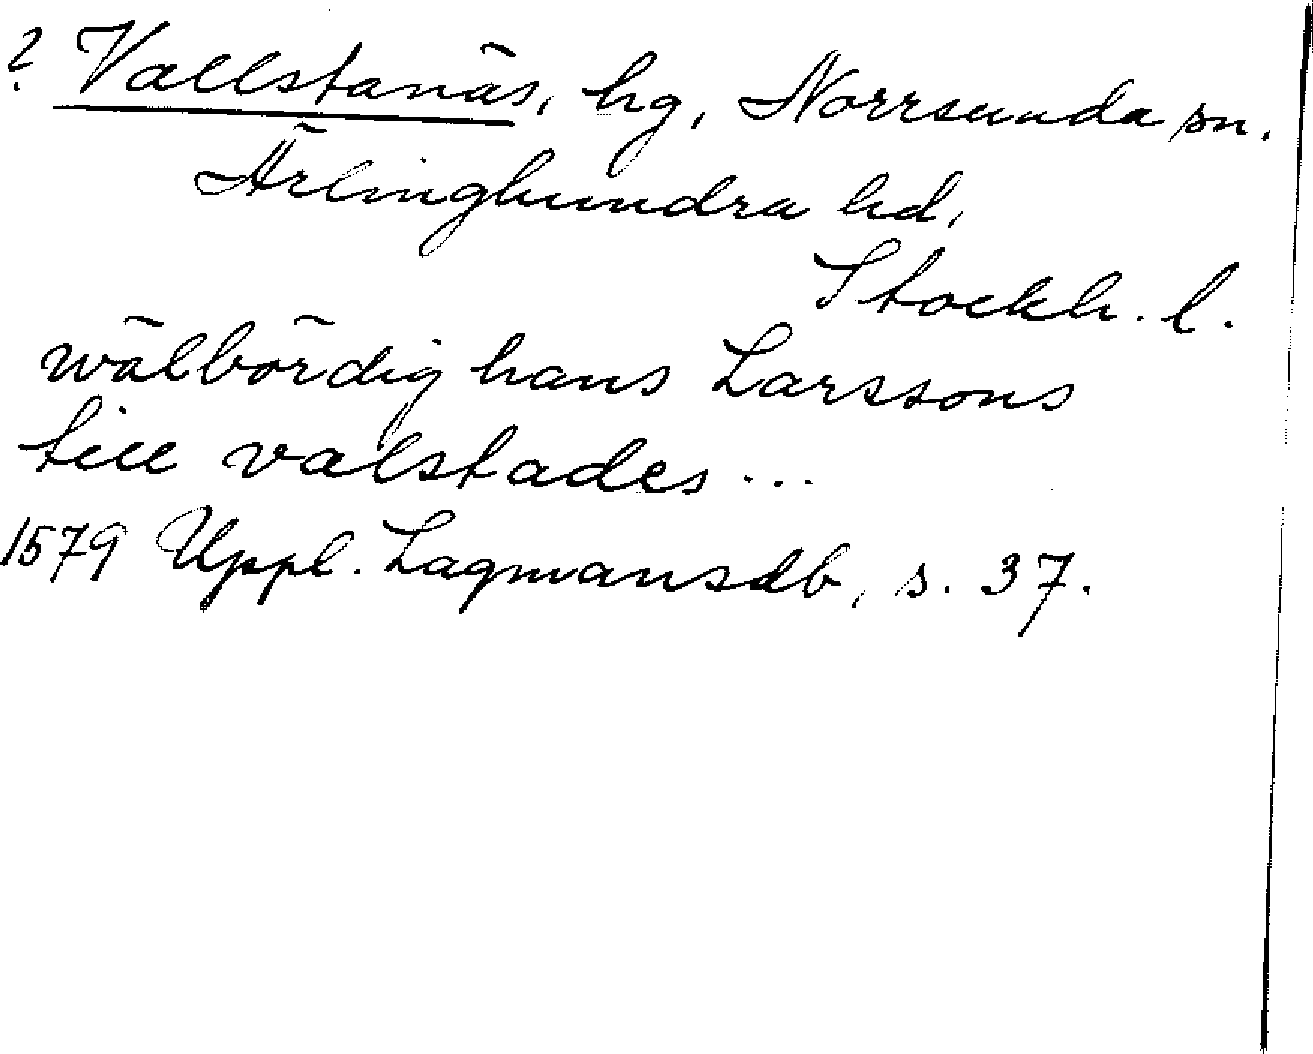 ? Vallstanäs, hg, Norrsunda sn.
Ärlinghundra hd,
Stockh. l.
wälbördig hans Larssons
till valstades...
1579 Uppl. Lagmansdb, s. 37.